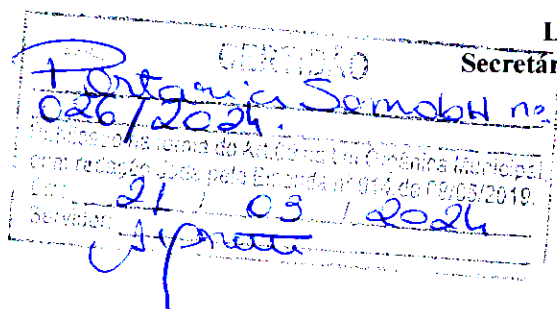 L
Secretár
CERTIDÃO
Portaria Semobh nº
026/2024.
na forma do Art. Lei Orgânica Municipal,
com redação dada pela Emenda nº 014 de 09/05/2019.
21 / 03 / 2024
Servidor: